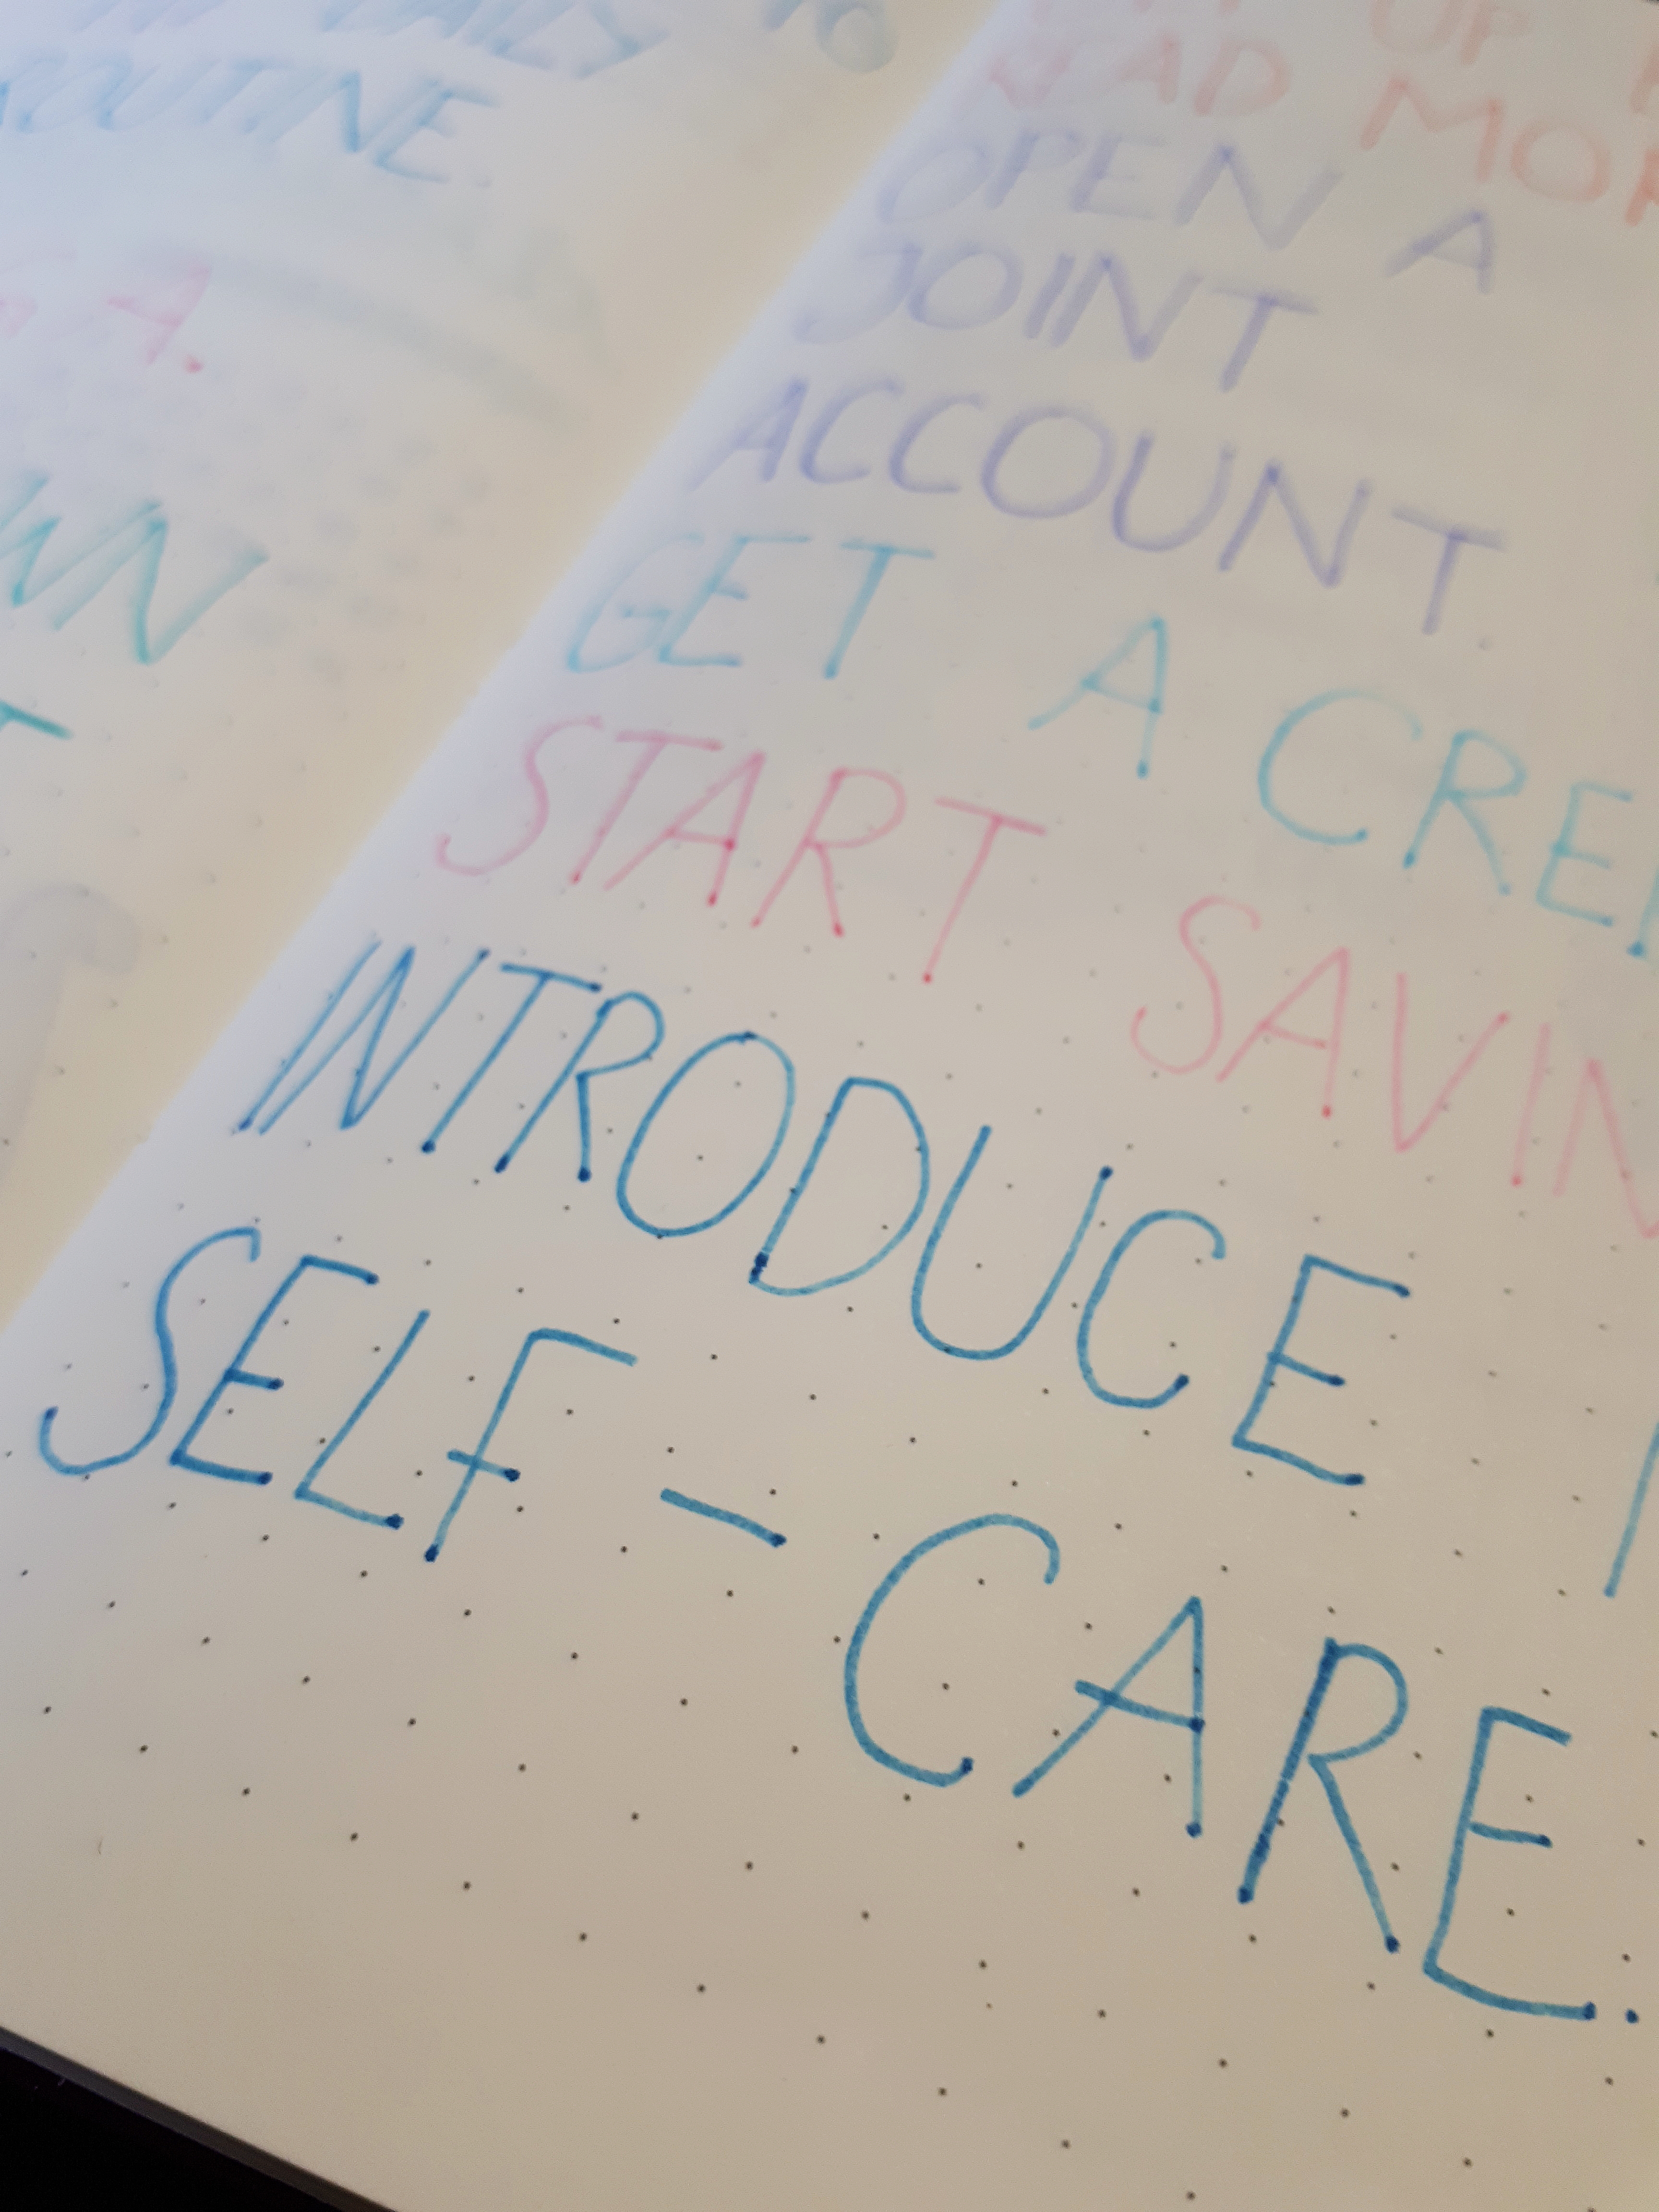 ROUTINE.
A.
UP
READ MOR
OPEN A
JOINT
ACCOUNT
GET A CREI
START SAVIN
INTRODUCE
SELF-CARE.